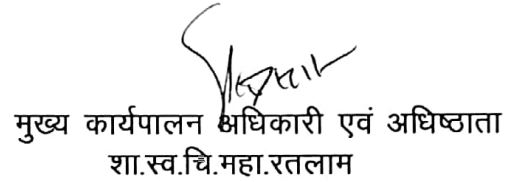 मुख्य कार्यपालन अधिकारी एवं अधिष्ठाता
शा.स्व.चि.महा.रतलाम